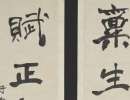 稟生
賦正